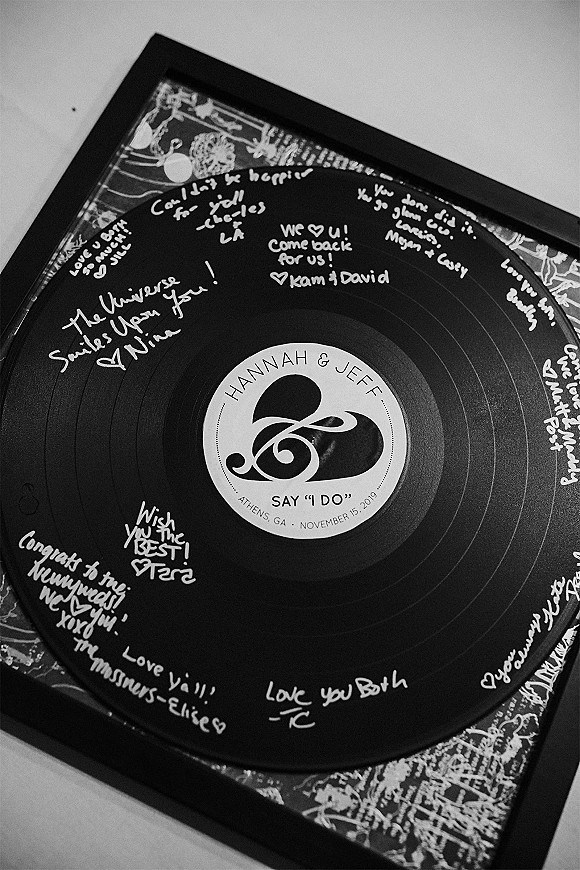 Couldn't be happier
for y'all
- Charles
LA
LOVE U BOTH
SO MUCH!
♡ JILL
We ♡ u!
Come back
for us!
♡ Kam & David
You done did it.
Megan & Casey
Love you both,
The Universe
Smiles Upon You!
♡ Nina
We love
♡ Matt & Mandy
Post
HANNAH & JEFF
&
SAY "I DO"
ATHENS, GA • NOVEMBER 15, 2019
Wish
you the
BEST!
♡ Tara
Congrats to the
Newlyweds!
We ♡ you!
xoxo
The
Mossners - Elise ♡
Love y'all!
Love you Both
- TC
♡ you
always
Kate